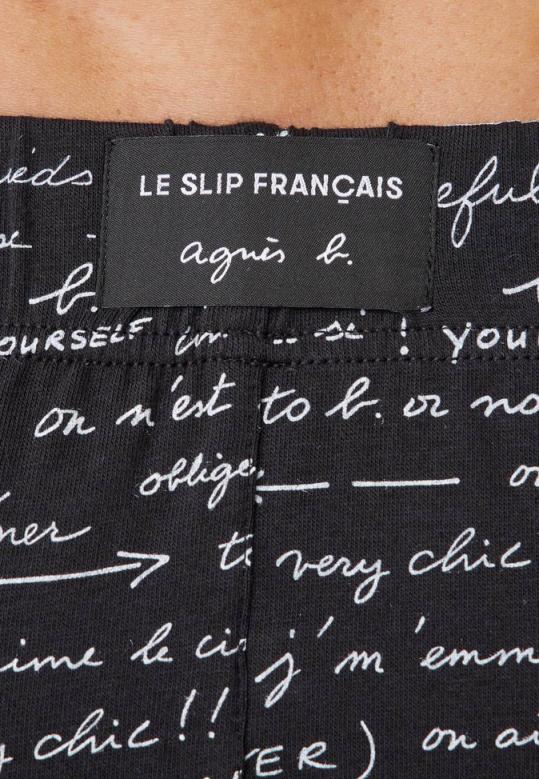 LE SLIP FRANÇAIS
agnès b.
b.
OURSELF ! YOU
on n'est to b. or no
oblige on
to very chic
ime le ci j'm'emm
chic !! ER) on ai